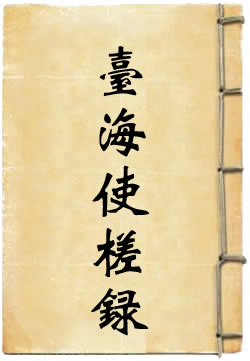 臺海使槎録